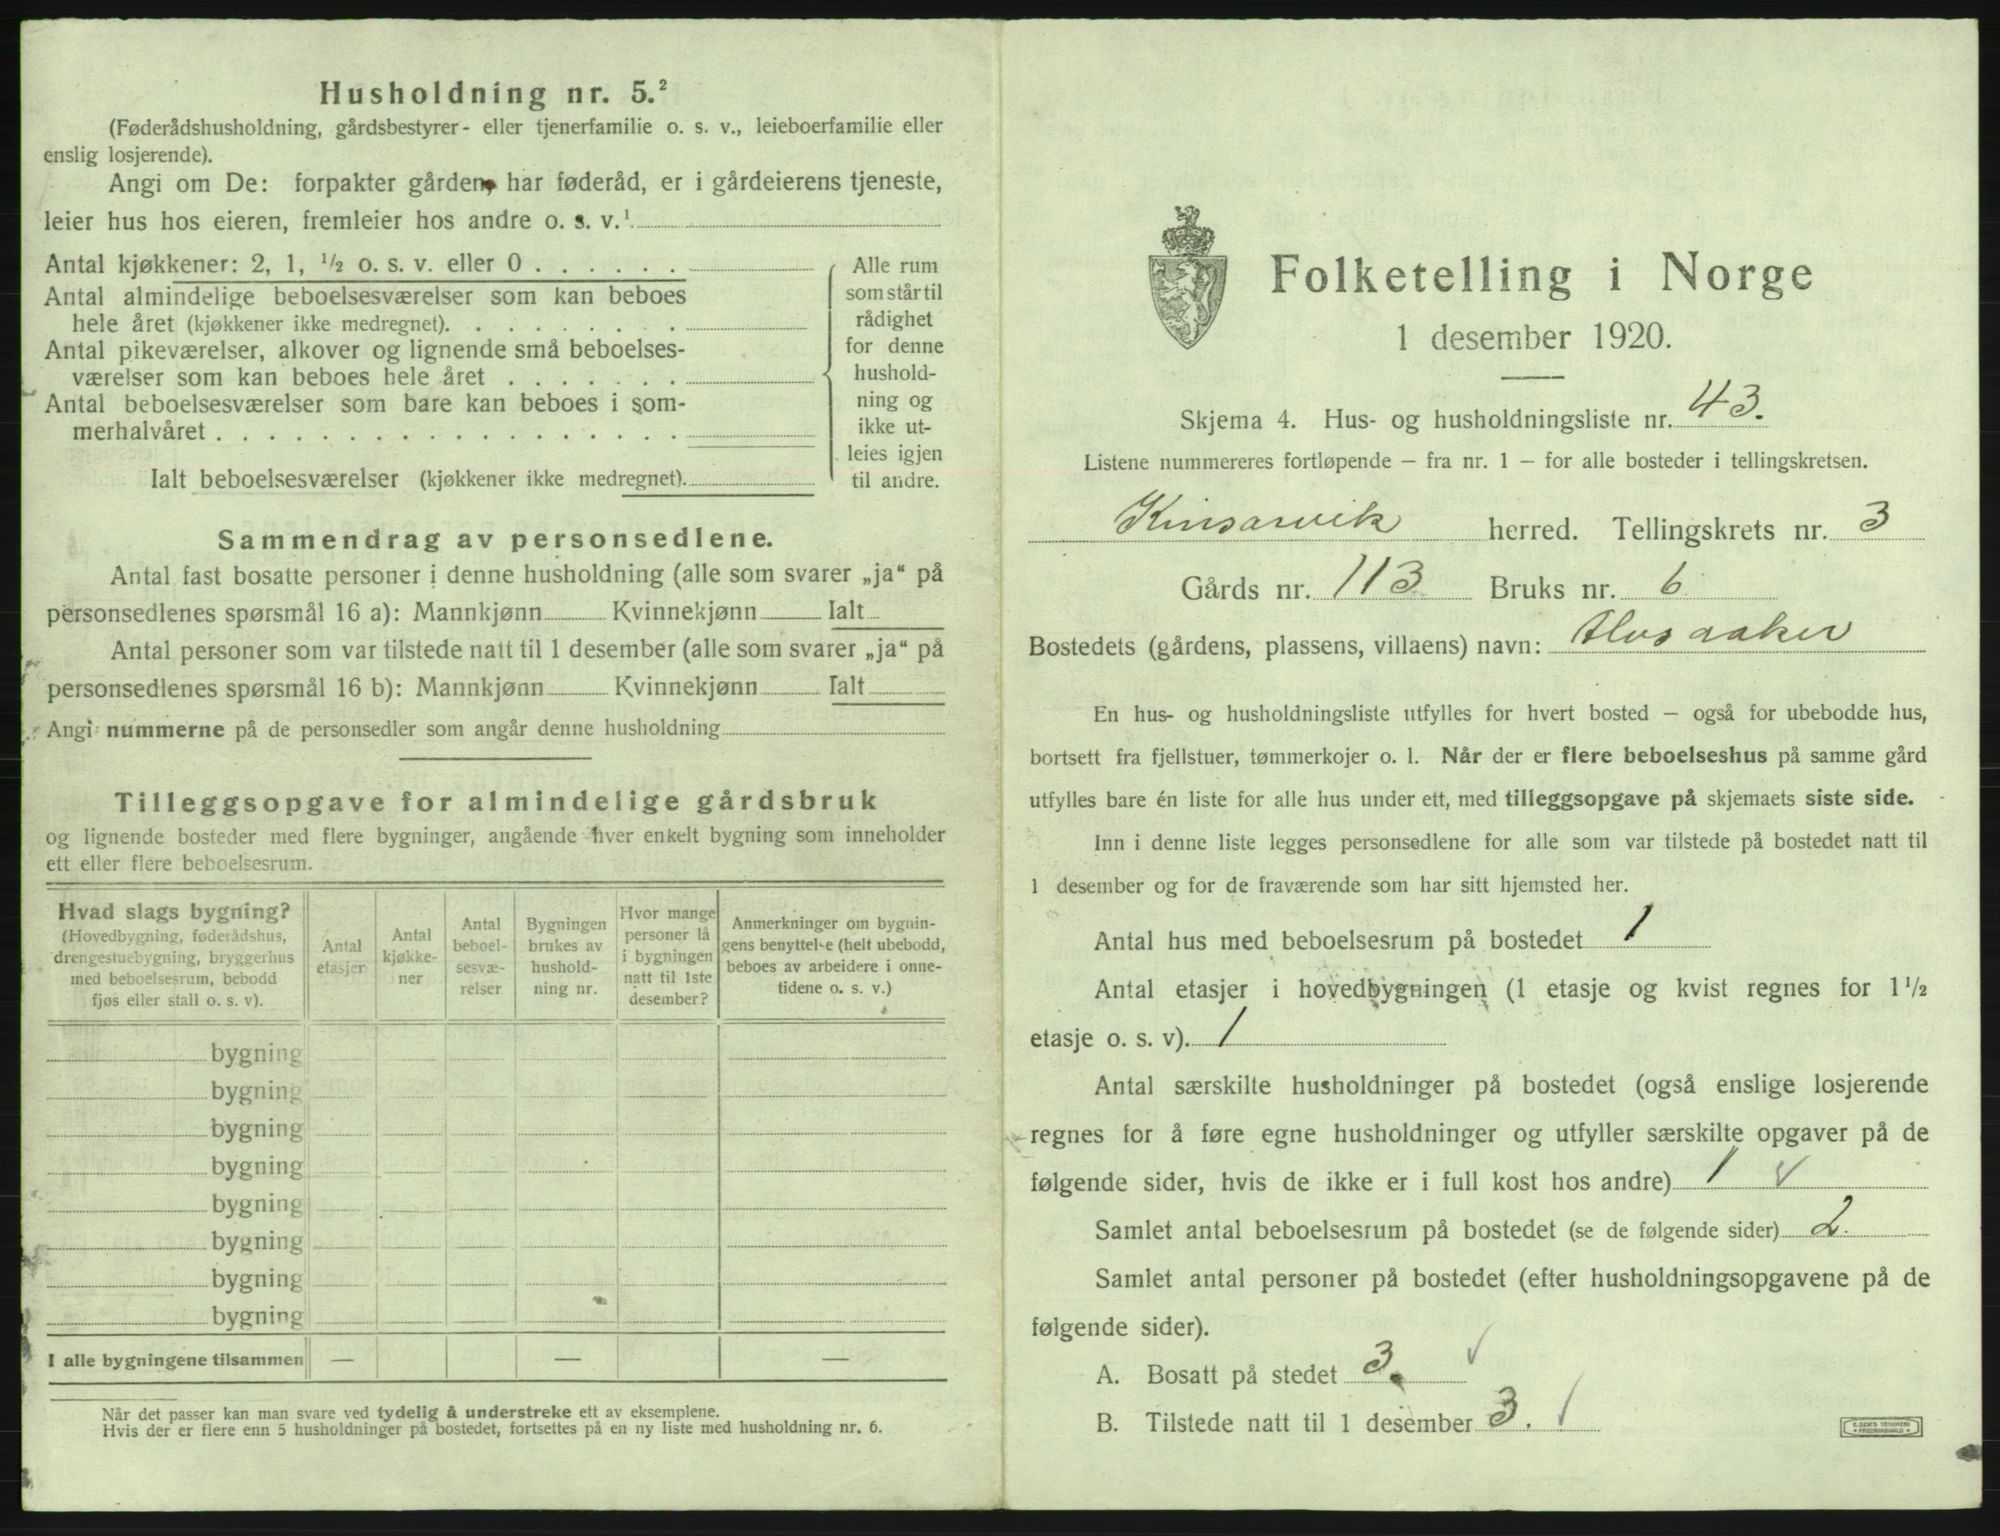 Husholdning nr. 5.²
(Føderådshusholdning, gårdsbestyrer- eller tjenerfamilie o. s. v., leieboerfamilie eller
enslig losjerende).
Angi om De: forpakter gården, har føderåd, er i gårdeierens tjeneste,
leier hus hos eieren, fremleier hos andre o. s. v.¹
Antal kjøkkener: 2, 1, ½ o. s. v. eller 0 . . . . . .
Antal almindelige beboelsesværelser som kan beboes
hele året (kjøkkener ikke medregnet). . . . . . . . .
Antal pikeværelser, alkover og lignende små beboelses-
værelser som kan beboes hele året . . . . . . .
Antal beboelsesværelser som bare kan beboes i som-
merhalvåret . . . . . . . . . . . . . . . . . .
Ialt beboelsesværelser (kjøkkener ikke medregnet).
Alle rum
som står til
rådighet
for denne
hushold-
ning og
ikke ut-
leies igjen
til andre.
Sammendrag av personsedlene.
Antal fast bosatte personer i denne husholdning (alle som svarer „ja“ på
personsedlenes spørsmål 16 a): Mannkjønn Kvinnekjønn Ialt
Antal personer som var tilstede natt til 1 desember (alle som svarer „ja“ på
personsedlenes spørsmål 16 b): Mannkjønn Kvinnekjønn Ialt
Angi nummerne på de personsedler som angår denne husholdning
Tilleggsopgave for almindelige gårdsbruk
og lignende bosteder med flere bygninger, angående hver enkelt bygning som inneholder
ett eller flere beboelsesrum.
Hvad slags bygning?
(Hovedbygning, føderådshus,
drengestuebygning, bryggerhus
med beboelsesrum, bebodd
fjøs eller stall o. s. v).
Antal
etasjer
Antal
kjøkke-
ner
Antal
beboel-
sesvæ-
relser
Bygningen
brukes av
hushold-
ning nr.
Hvor mange
personer lå
i bygningen
natt til 1ste
desember?
Anmerkninger om bygnin-
gens benyttelse (helt ubebodd,
beboes av arbeidere i onne-
tidene o. s. v.)
bygning
bygning
bygning
bygning
bygning
bygning
bygning
bygning
I alle bygningene tilsammen — — —
Når det passer kan man svare ved tydelig å understreke ett av eksemplene.
Hvis der er flere enn 5 husholdninger på bostedet, fortsettes på en ny liste med husholdning nr. 6.
Folketelling i Norge
1 desember 1920.
Skjema 4. Hus- og husholdningsliste nr. 43.
Listene nummereres fortløpende — fra nr. 1 — for alle bosteder i tellingskretsen.
Kinsarvik herred. Tellingskrets nr. 3
Gårds nr. 113 Bruks nr. 6
Bostedets (gårdens, plassens, villaens) navn: Husaaker
En hus- og husholdningsliste utfylles for hvert bosted — også for ubebodde hus,
bortsett fra fjellstuer, tømmerkojer o. l. Når der er flere beboelseshus på samme gård
utfylles bare én liste for alle hus under ett, med tilleggsopgave på skjemaets siste side.
Inn i denne liste legges personsedlene for alle som var tilstede på bostedet natt til
1 desember og for de fraværende som har sitt hjemsted her.
Antal hus med beboelsesrum på bostedet 1
Antal etasjer i hovedbygningen (1 etasje og kvist regnes for 1½
etasje o. s. v). 1
Antal særskilte husholdninger på bostedet (også enslige losjerende
regnes for å føre egne husholdninger og utfyller særskilte opgaver på de
følgende sider, hvis de ikke er i full kost hos andre) 1 √
Samlet antal beboelsesrum på bostedet (se de følgende sider) 2.
Samlet antal personer på bostedet (efter husholdningsopgavene på de
følgende sider).
A. Bosatt på stedet 3. √
B. Tilstede natt til 1 desember 3. √
E. SEM'S TRYKKERI
FREDRIKSHALD